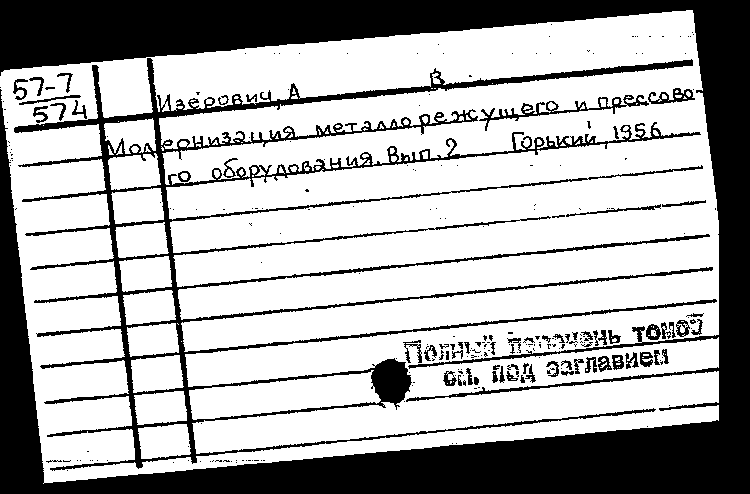 57-7
574
Изерович, А В.
Модернизация металлорежущего и прессово-
го оборудования. Вып. 2 Горький, 1956
Полный перечень томов
см. под заглавием